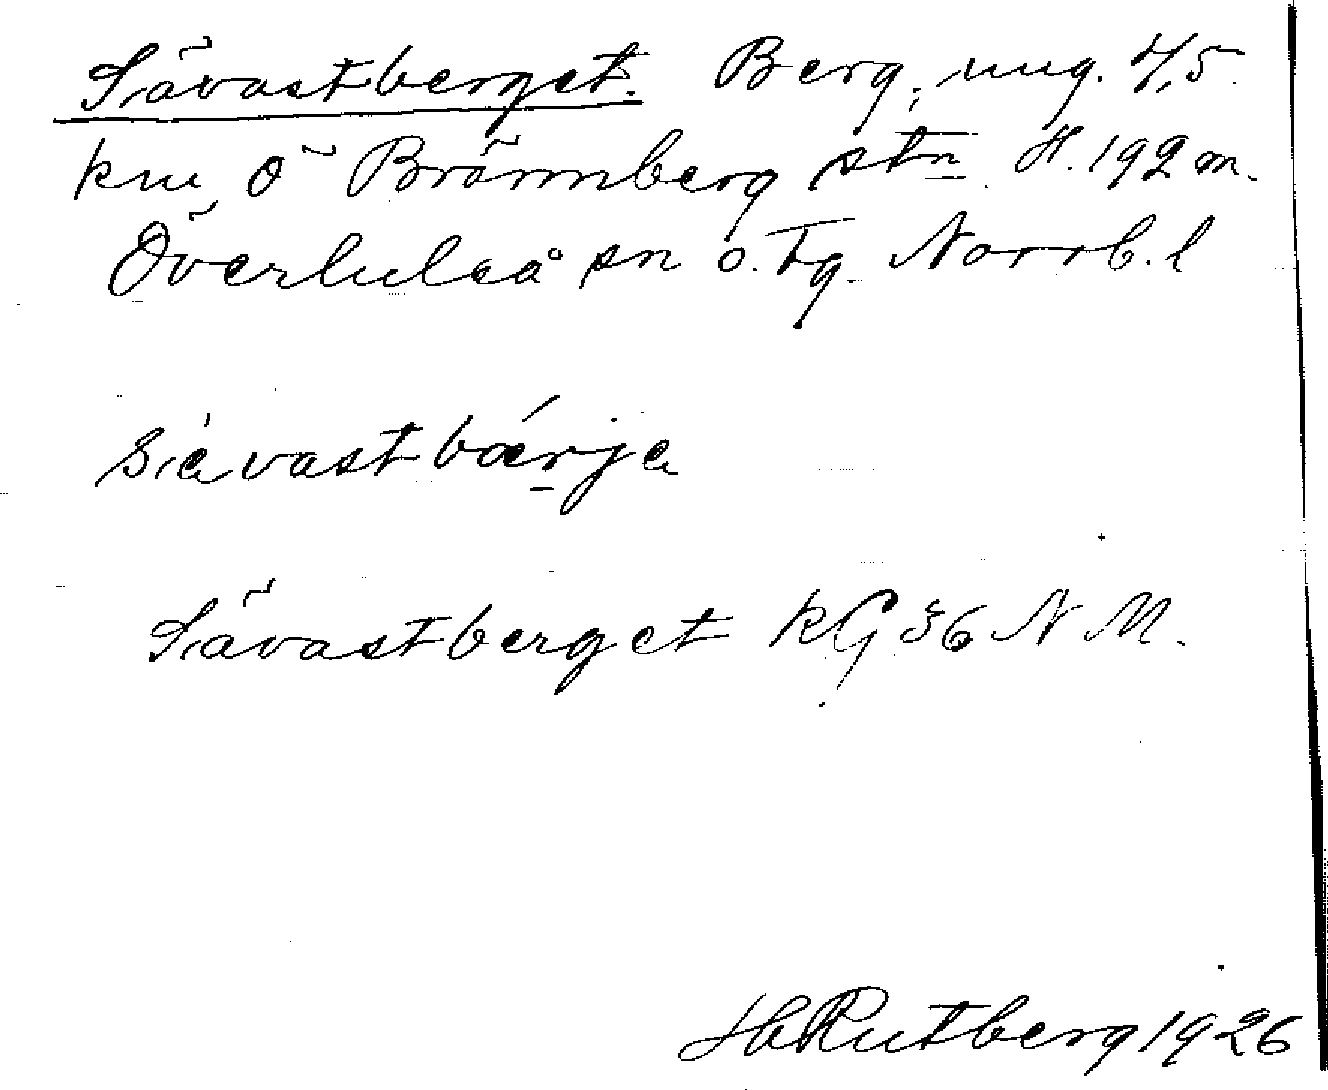 Sävastberget. Berg, ung. 4,5
km Ö Brännberg stn H. 192 m.
Överluleå sn o. tg. Norrb. l
sävastbärja
Sävastberget KG 36 N M.
Hb Rutberg 1926